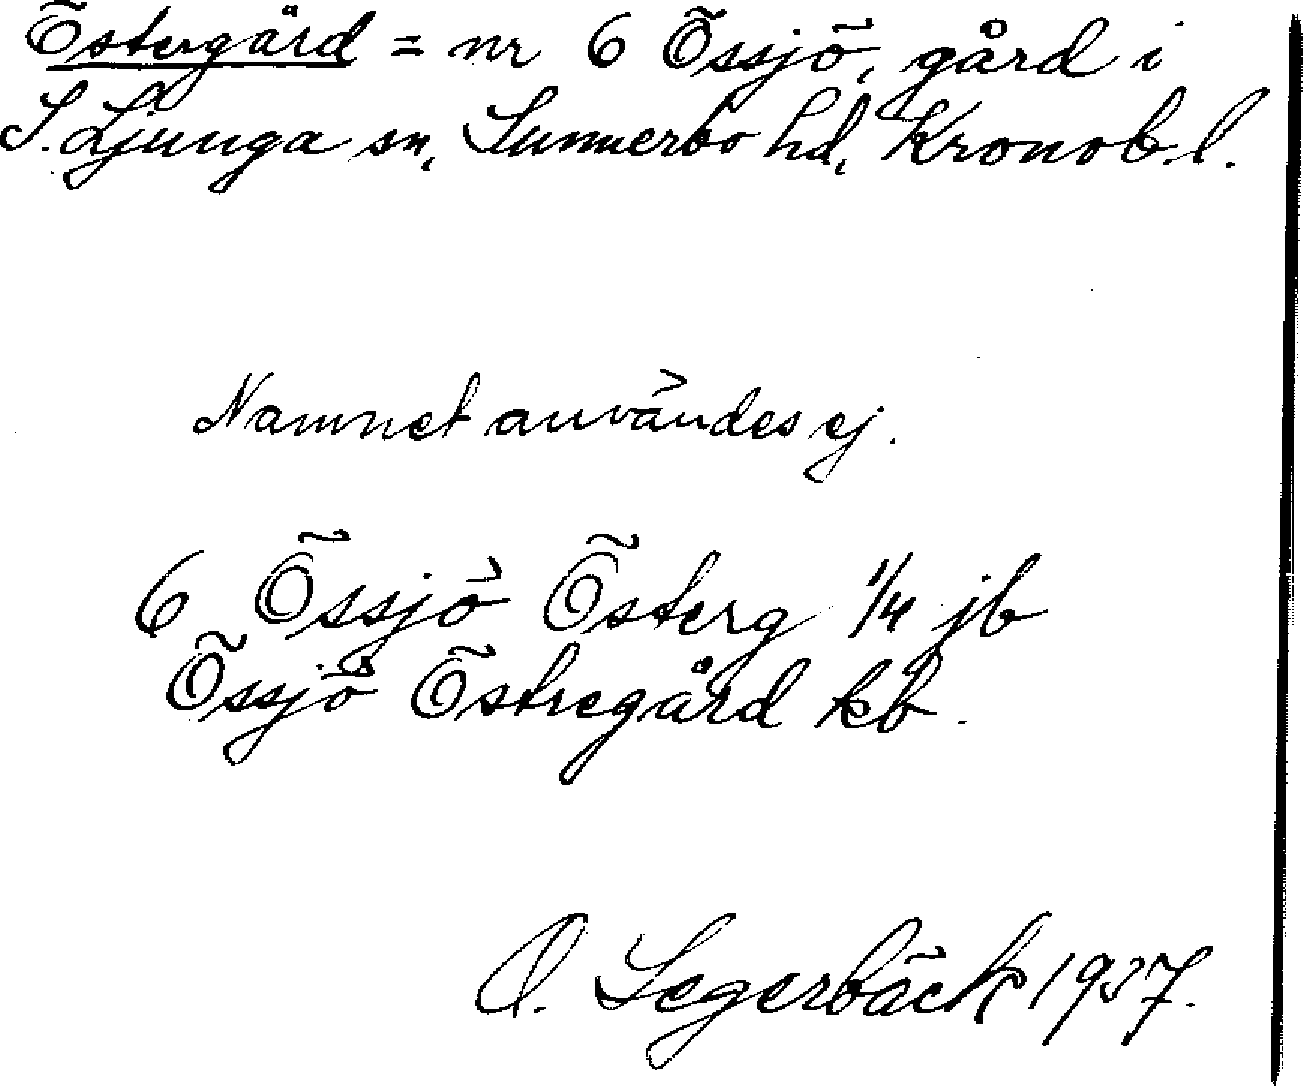 Östergård = nr 6 Össjö, gård i
S. Ljunga sn, Sunnerbo hd, Kronob. l.
Namnet användes ej.
6 Össjö Österg 1/4 jb
Össjö Östregård kb.
O. Segerbäck 1937.